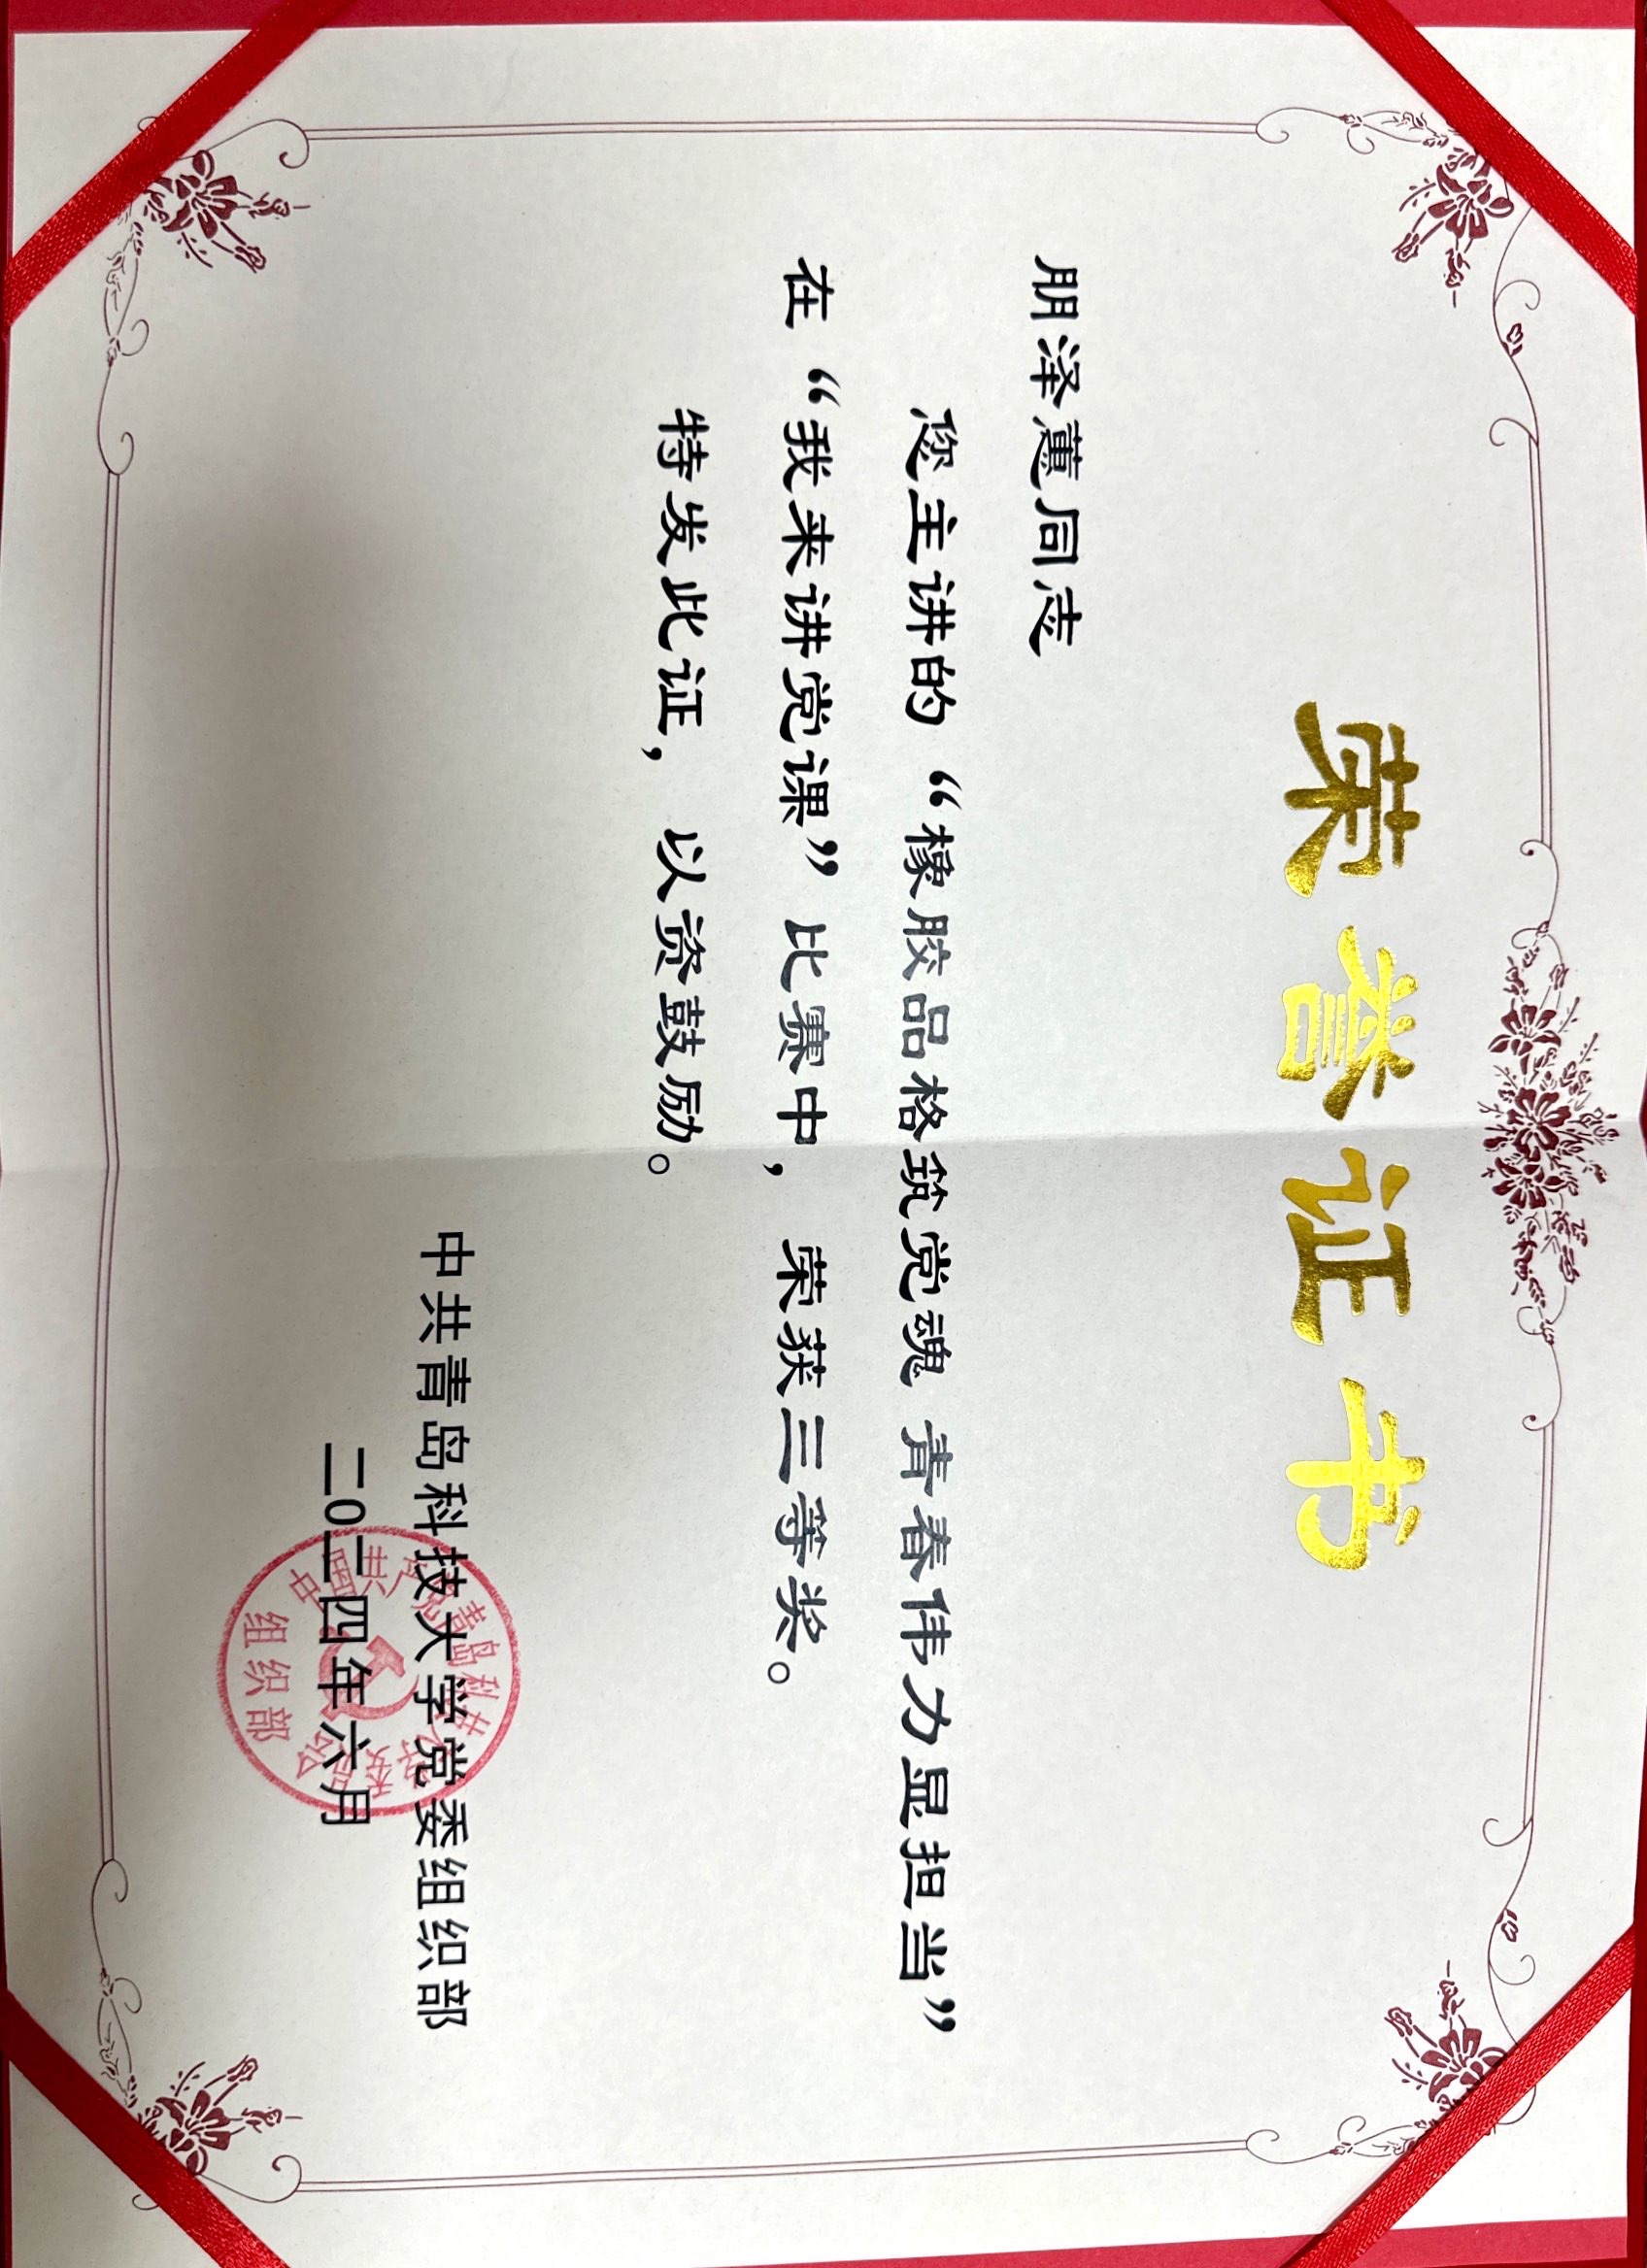 荣誉证书
朋泽蕙同志
您主讲的“橡胶品格筑党魂 青春伟力显担当”
在“我来讲党课”比赛中，荣获三等奖。
特发此证，以资鼓励。
中共青岛科技大学党委组织部
二0二四年六月
中国共产党青岛科技大学委员会
组织部